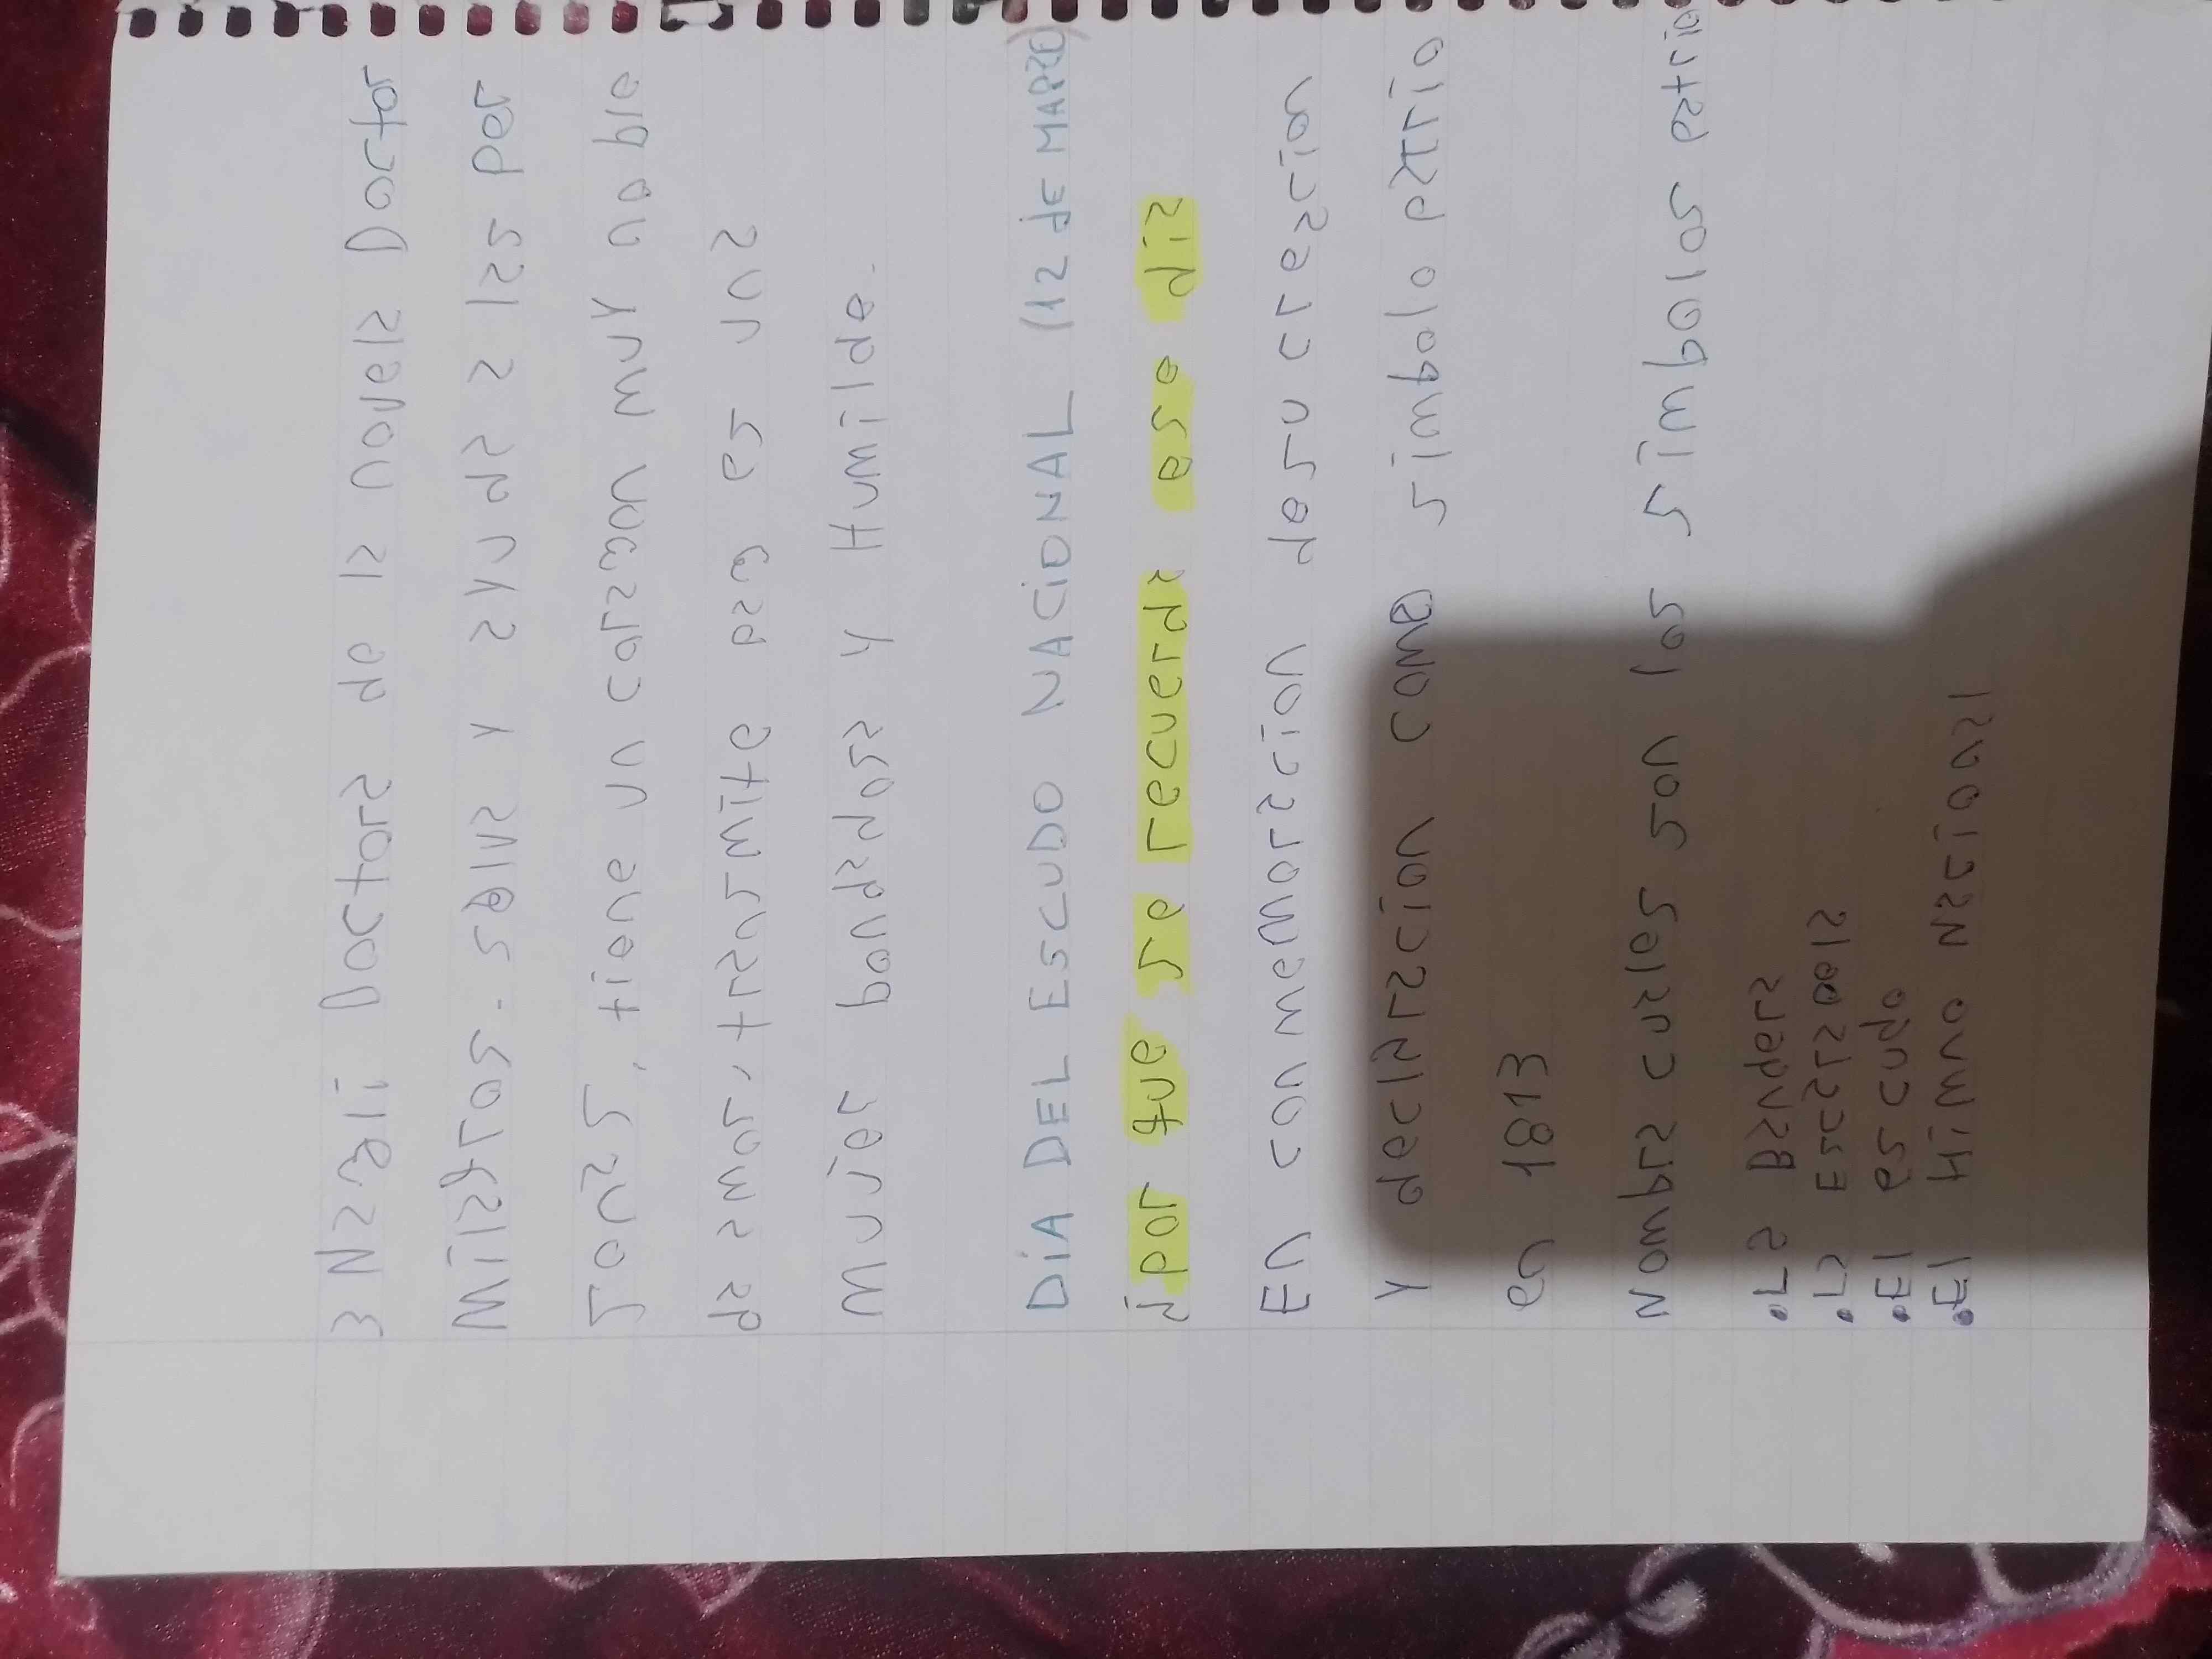 3 Nazali Doctora de la novela Doctor
Milagros. salva y ayuda a las per
sonas, tiene un corazon muy noble
da amor, transmite paz es una
mujer bondadosa y Humilde.
DíA DEL ESCUDO NACIONAL (12 de MARZO)
¿por que se recuerda ese dia
En conmemoracion de su creacion
y declaracion como simbolo patrio
en 1813
Nombra cuales son los simbolos patrio
• La Bandera
• La Escarapela
• el escudo
• el Himno Nacional